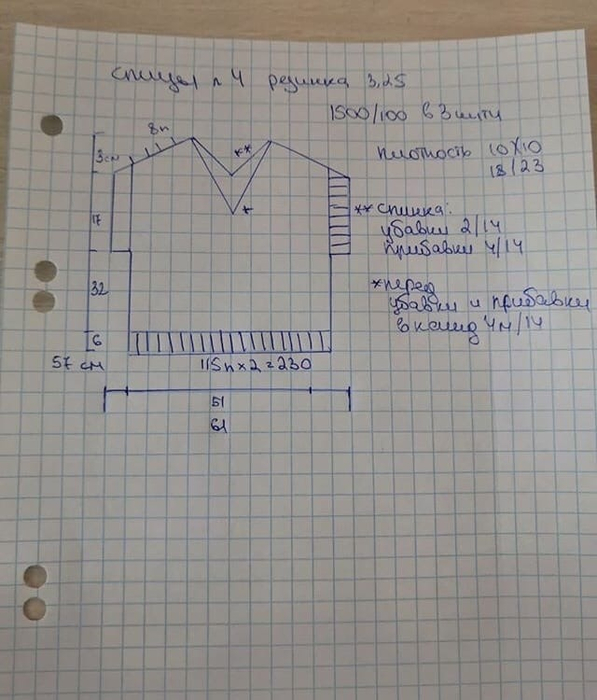 спицы n 4 резинка 3,25
1500/100 в 3 нити
плотность 10X10
18/23
8п
3см
**
*
17
** спинка:
убавки 2/14
прибавки 4/14
32
*перед
убавки и прибавки
в кажд 4м/14
6
57 см
115п x 2 = 230
51
61